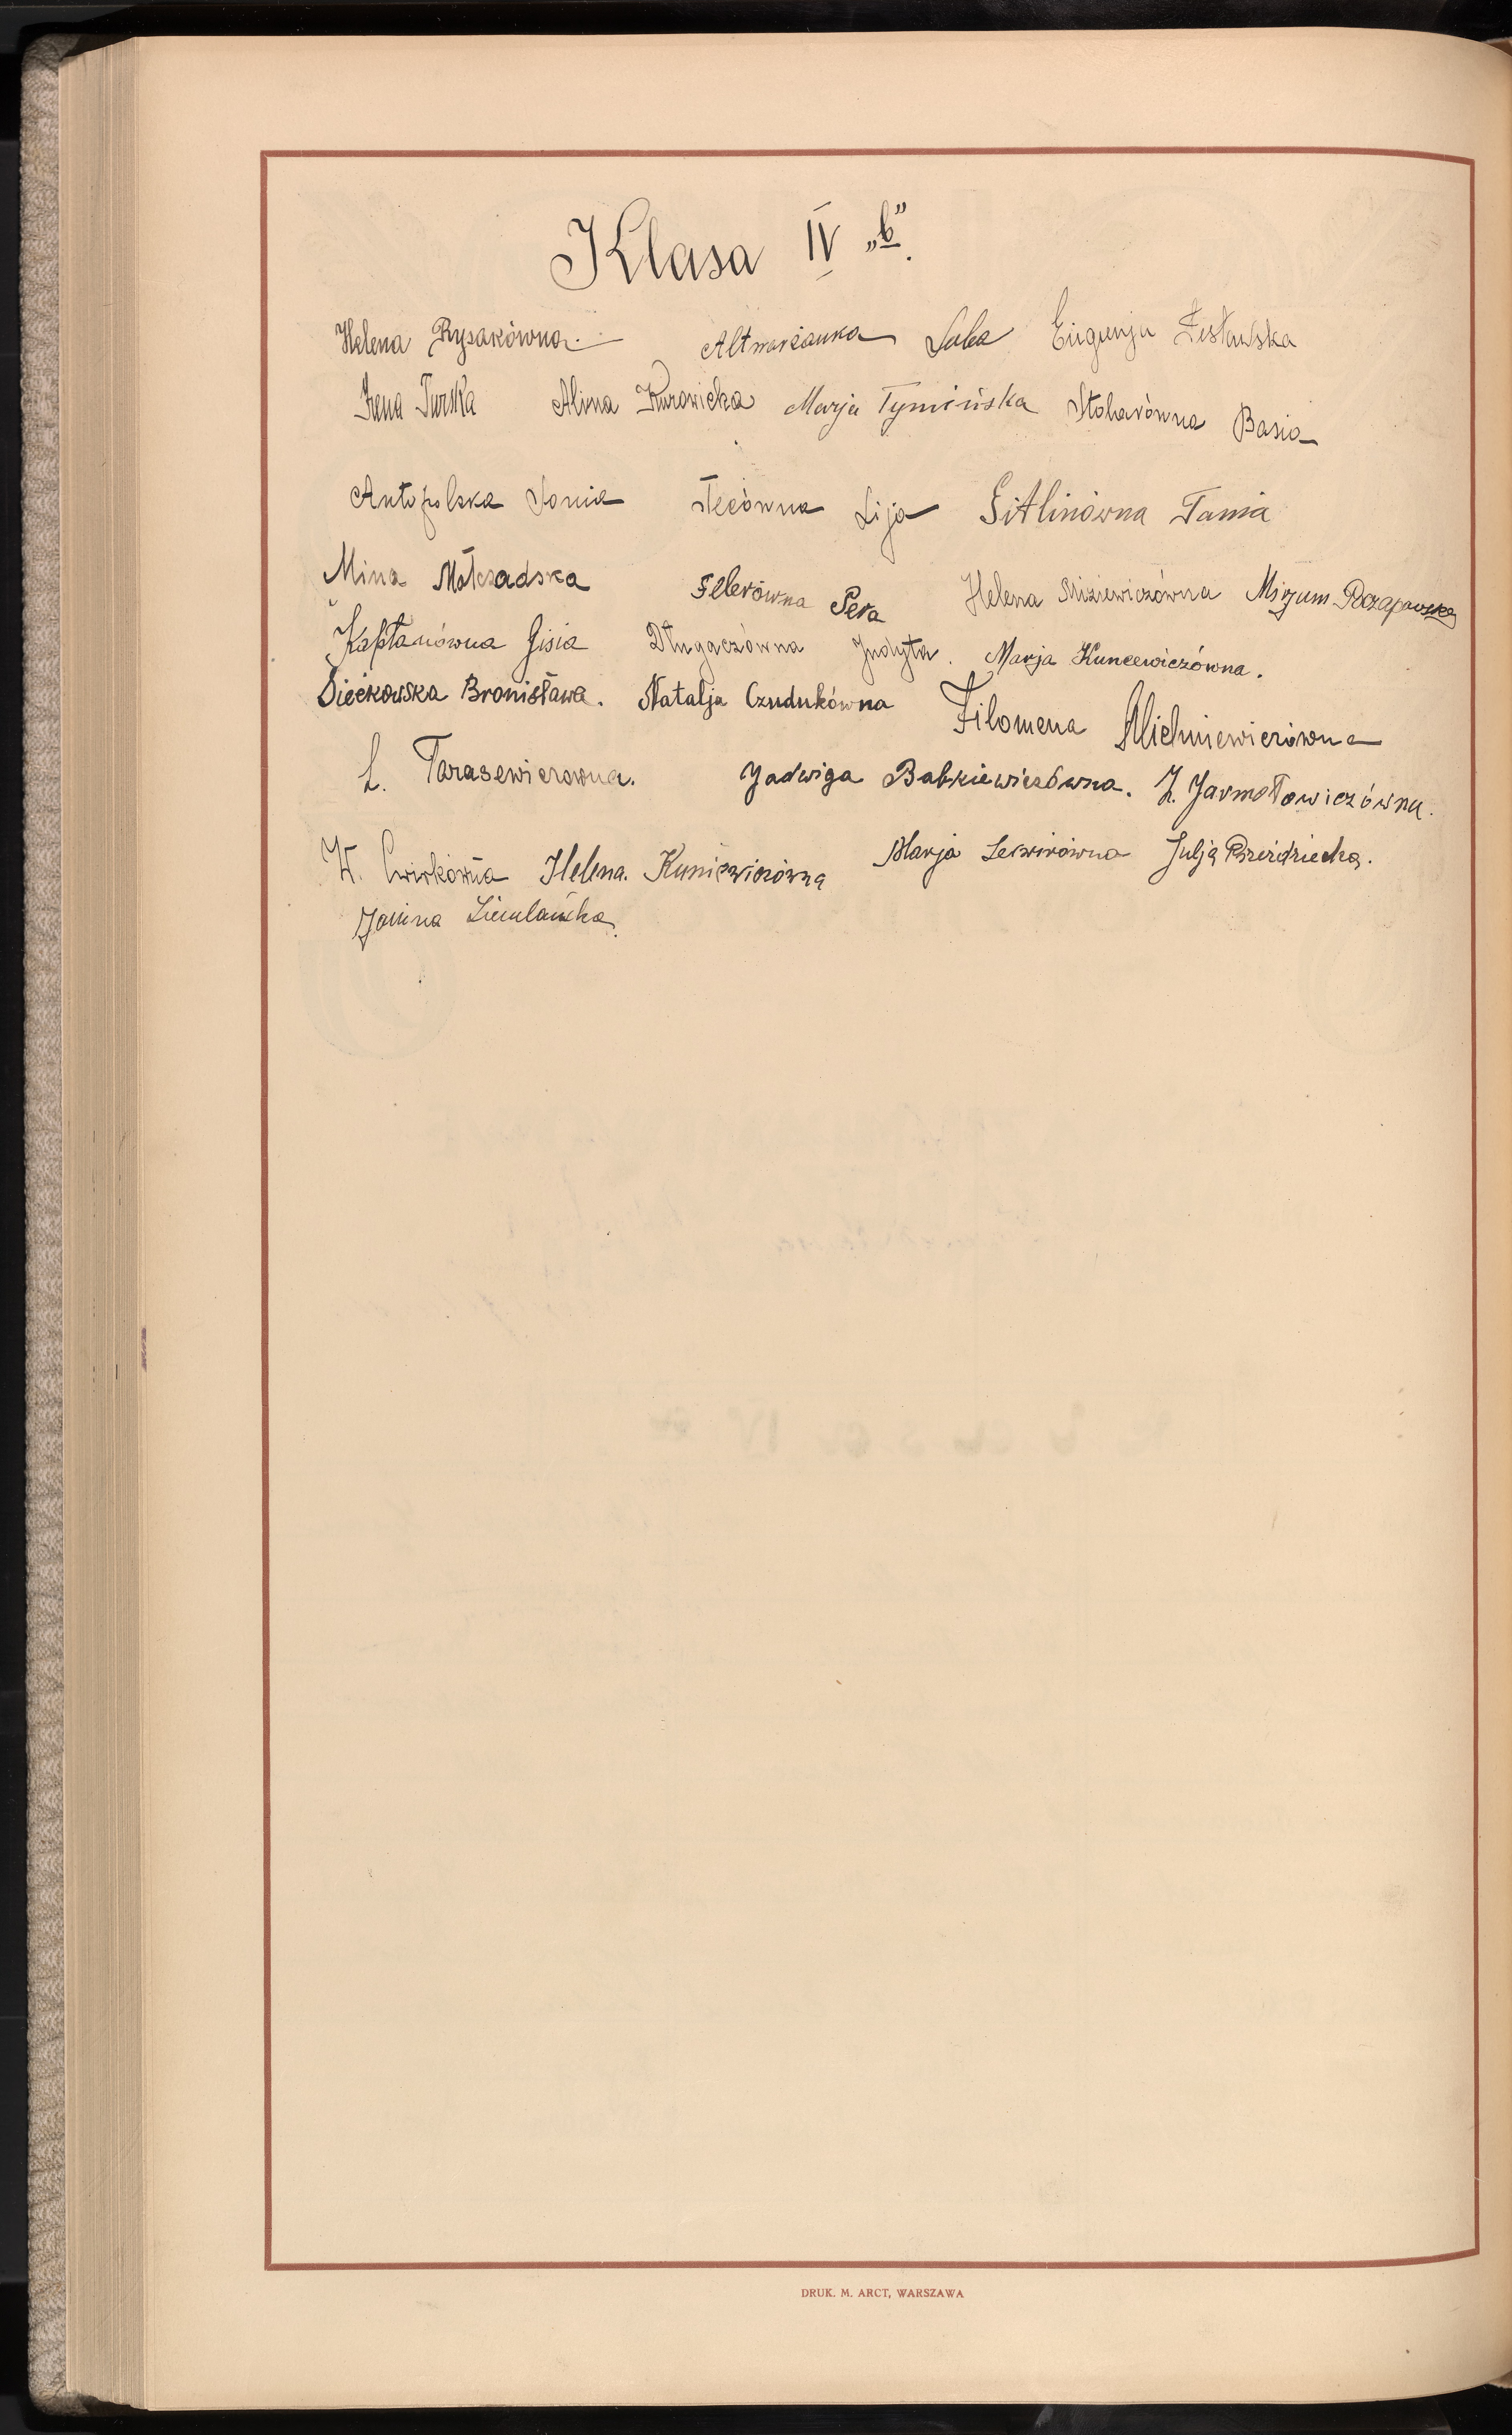 Klasa IV „b”.
Helena Rysakówna. Altwarżanka Luba Eugenja Żesławska
Irena Turska Alina Kurowicka Marja Tymińska Stolarówna Basia
Antopolska Sonia Łecówna Lija Gitlinówna Tania
Mina Mołczadska Felerówna Pera Helena Miziewiczówna Mirjum Poczapowska
Kapłanówna Gisia Długaczówna Judyta. Marja Kuncewiczówna.
Siećkowska Bronisława. Natalja Czudukówna Filomena Michniewiczówna
L. Tarasewiczówna. Jadwiga Babkiewiczówna. Z. Jarmołowiczówna.
W. Ćwirkówna Helena. Kuniewiczówna Marja Lekwirówna Julja Przezdziecka.
Janina Ziemlańska.
DRUK. M. ARCT, WARSZAWA